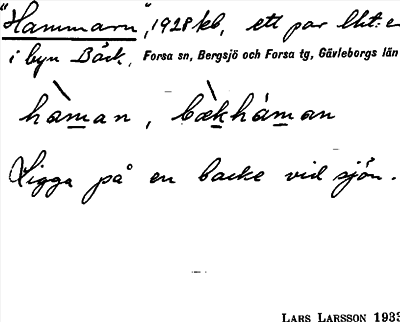 "Hammarn", 1928 kb, ett par lht:er
i byn Bäck, Forsa sn, Bergsjö och Forsa tg, Gävleborgs län
hàman, bækháman
Ligga på en backe vid sjön.
LARS LARSSON 1933